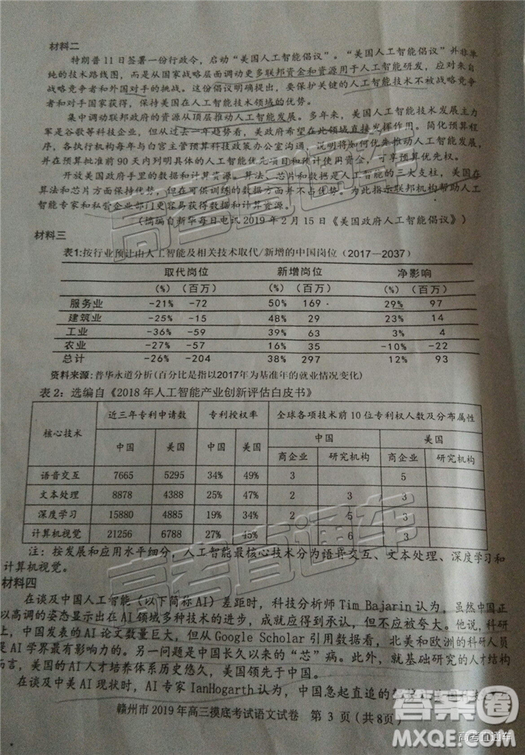 材料二
特朗普11日签署一份行政令，启动“美国人工智能倡议”。“美国人工智能倡议”并非单
纯的技术路线图，而是从国家战略层面调动更多联邦资金和资源用于人工智能研发，应对来自
战略竞争者和外国对手的挑战。这份倡议明确提出，要保护关键的人工智能技术不被战略竞争
者和对手国家获得，保持美国在人工智能技术领域的优势。
集中调动联邦政府的资源从顶层推动人工智能发展。多年来，美国人工智能技术发展主力
军是谷歌等科技企业，但从过去一年趋势看，美政府希望在此领域直接发挥作用。简化预算程
序，各执行机构每年与白宫主管预算科技政策办公室沟通，说明将如何优先推动人工智能发展，
并在预算批准前90天内列明具体的人工智能优先项目和预计使用资金，可享预算优先权。
开放美国政府手里的数据和计算资源。算法、芯片和数据是人工智能的三大支柱，美国在
算法和芯片方面保持优势，但在可供训练的数据方面并不占优势，为此指示联邦机构帮助人工
智能专家和私营企业部门更容易获得数据和计算资源。
（摘编自新华每日电讯2019年2月15日《美国政府人工智能倡议》）
材料三
表1:按行业预计由人工智能及相关技术取代/新增的中国岗位（2017—2037）
取代岗位 新增岗位 净影响
（%）（百万） （%）（百万） （%）（百万）
服务业 -21% -72 50% 169 29% 97
建筑业 -25% -15 48% 29 23% 14
工业 -36% -59 39% 63 3% 4
农业 -27% -57 16% 35 -10% -22
总计 -26% -204 38% 297 12% 93
资料来源：普华永道分析（百分比是指以2017年为基准年的就业情况变化）
表2：选编自《2018年人工智能产业创新评估白皮书》
核心技术 近三年专利申请数 专利授权率 全球各项技术前10位专利权人数及分布属性
中国 美国 中国 美国 中国 美国
商企业 研究机构 商企业 研究机构
语音交互 7665 5295 34% 49% 3 5
文本处理 8878 4388 25% 47% 2 3 3
深度学习 15880 4885 19% 34% 3
计算机视觉 21256 6788 27% 45% 3
注：按发展和应用水平细分，人工智能最核心技术分为语音交互、文本处理、深度学习和
计算机视觉。
材料四
在谈及中国人工智能（以下简称AI）差距时，科技分析师Tim Bajarin认为。虽然中国正
以高调的姿态显示出在AI领域多种技术的进步，成就应得到承认，但不应被夸大。他说，科研
上，中国发表的AI论文数量巨大，但从Google Scholar引用数据看，北美和欧洲的科研人员
是AI学界最有影响力的。另一问题是中国长久以来的“芯”病。此外，就基础研究的人才结构
而言，美国的AI人才培养体系历史悠久，美国领先于中国。
在谈及中美AI现状时，AI专家IanHogarth认为，中国急起直追的
赣州市2019年高三摸底考试语文试卷 第3页（共8页）
高考直通车
答案圈